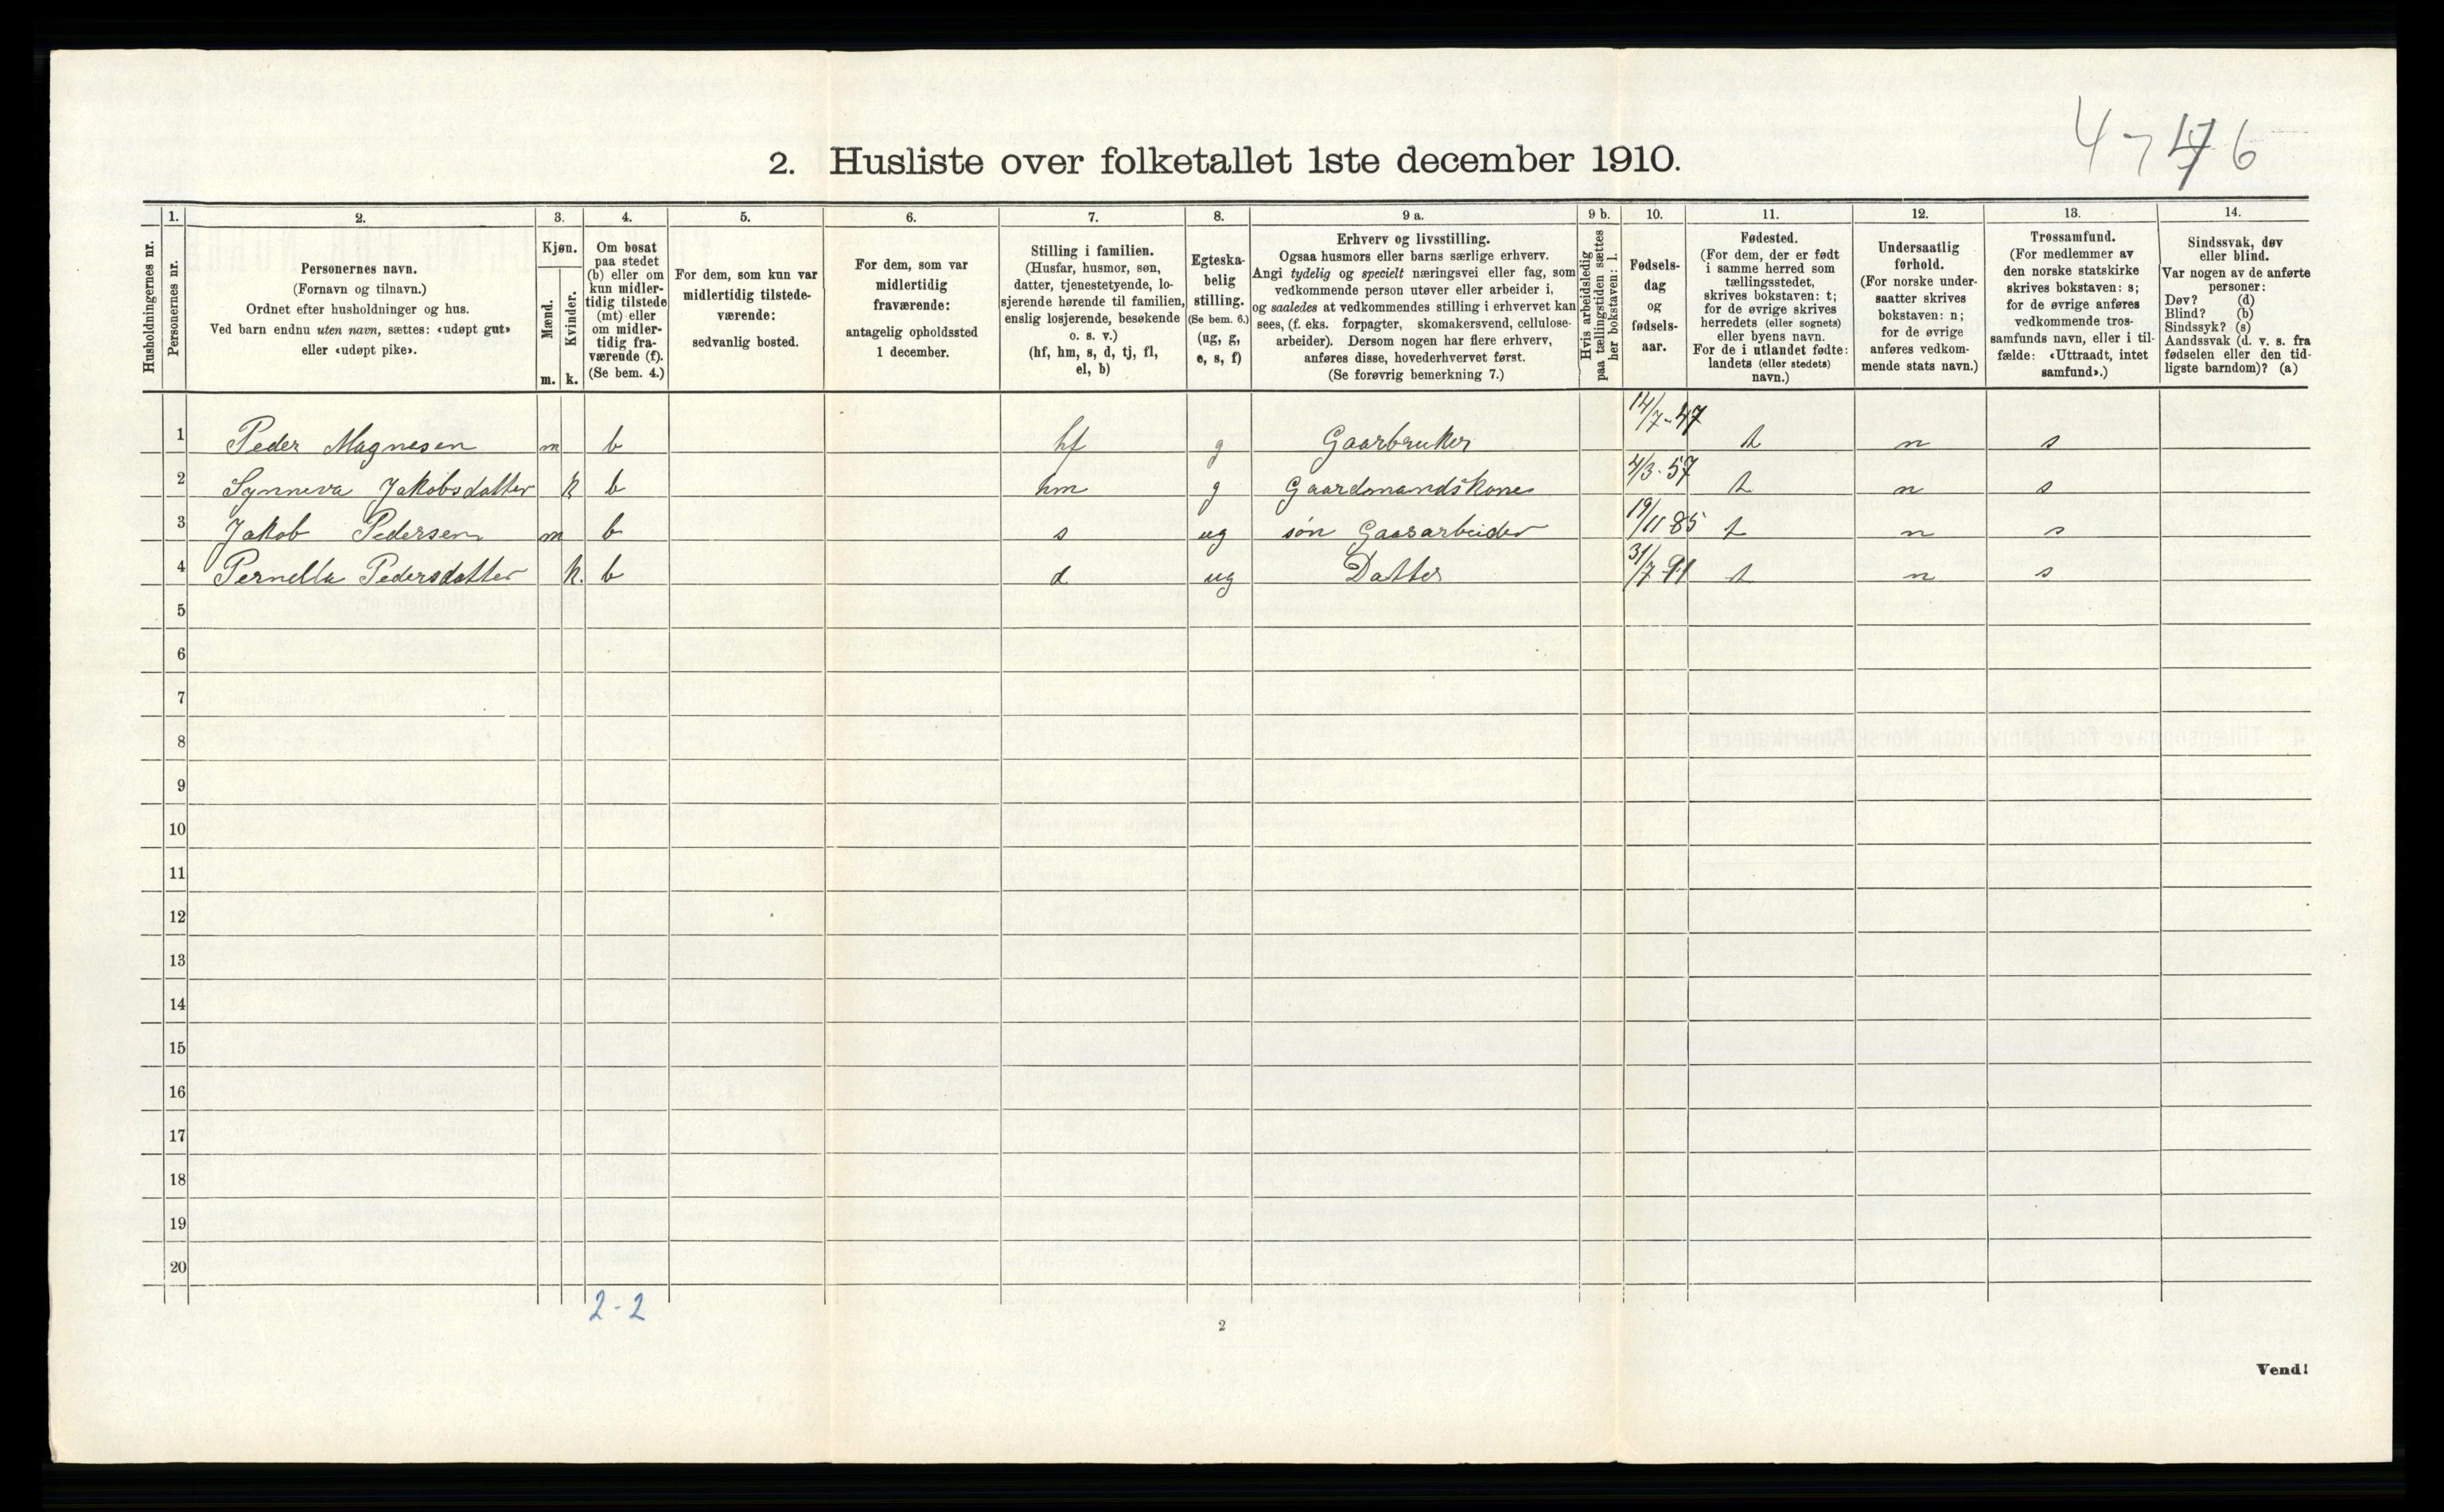 4-76
2. Husliste over folketallet 1ste december 1910.
Husholdningernes nr.
1.
Personernes nr.
2.
Personernes navn.
(Fornavn og tilnavn.)
Ordnet efter husholdninger og hus.
Ved barn endnu uten navn, sættes: «udøpt gut»
eller «udøpt pike».
3.
Kjøn.
Mænd.
Kvinder.
m. k.
4.
Om bosat
paa stedet
(b) eller om
kun midler-
tidig tilstede
(mt) eller
om midler-
tidig fra-
værende (f).
(Se bem. 4.)
5.
For dem, som kun var
midlertidig tilstede-
værende:
sedvanlig bosted.
6.
For dem, som var
midlertidig
fraværende:
antagelig opholdssted
1 december.
7.
Stilling i familien.
(Husfar, husmor, søn,
datter, tjenestetyende, lo-
sjerende hørende til familien,
enslig losjerende, besøkende
o. s. v.)
(hf, hm, s, d, tj, fl,
el, b)
8.
Egteska-
belig
stilling.
(Se bem. 6.)
(ug, g,
e, s, f)
9 a.
Erhverv og livsstilling.
Ogsaa husmors eller barns særlige erhverv.
Angi tydelig og specielt næringsvei eller fag, som
vedkommende person utøver eller arbeider i,
og saaledes at vedkommendes stilling i erhvervet kan
sees, (f. eks. forpagter, skomakersvend, cellulose-
arbeider). Dersom nogen har flere erhverv,
anføres disse, hovederhvervet først.
(Se forøvrig bemerkning 7.)
9 b.
Hvis arbeidsledig
paa tællingstiden sættes
her bokstaven: l.
10.
Fødsels-
dag
og
fødsels-
aar.
11.
Fødested.
(For dem, der er født
i samme herred som
tællingsstedet,
skrives bokstaven: t;
for de øvrige skrives
herredets (eller sognets)
eller byens navn.
For de i utlandet fødte:
landets (eller stedets)
navn.)
12.
Undersaatlig
forhold.
(For norske under-
saatter skrives
bokstaven: n;
for de øvrige
anføres vedkom-
mende stats navn.)
13.
Trossamfund.
(For medlemmer av
den norske statskirke
skrives bokstaven: s;
for de øvrige anføres
vedkommende tros-
samfunds navn, eller i til-
fælde: «Uttraadt, intet
samfund».)
14.
Sindssvak, døv
eller blind.
Var nogen av de anførte
personer:
Døv? (d)
Blind? (b)
Sindssyk? (s)
Aandssvak (d. v. s. fra
fødselen eller den tid-
ligste barndom)? (a)
1 Peder Magnesen m b hf g Gaarbruker 14/7-47 t n s
2 Synneva Jakobsdatter k b hm g Gaardmandskone 4/3-57 t n s
3 Jakob Pedersen m b s ug søn Gaararbeider 19/11 85 t n s
4 Pernella Pedersdatter k. b d ug Datter 31/7-91 t n s
5
6
7
8
9
10
11
12
13
14
15
16
17
18
19
20
2-2
2
Vend!